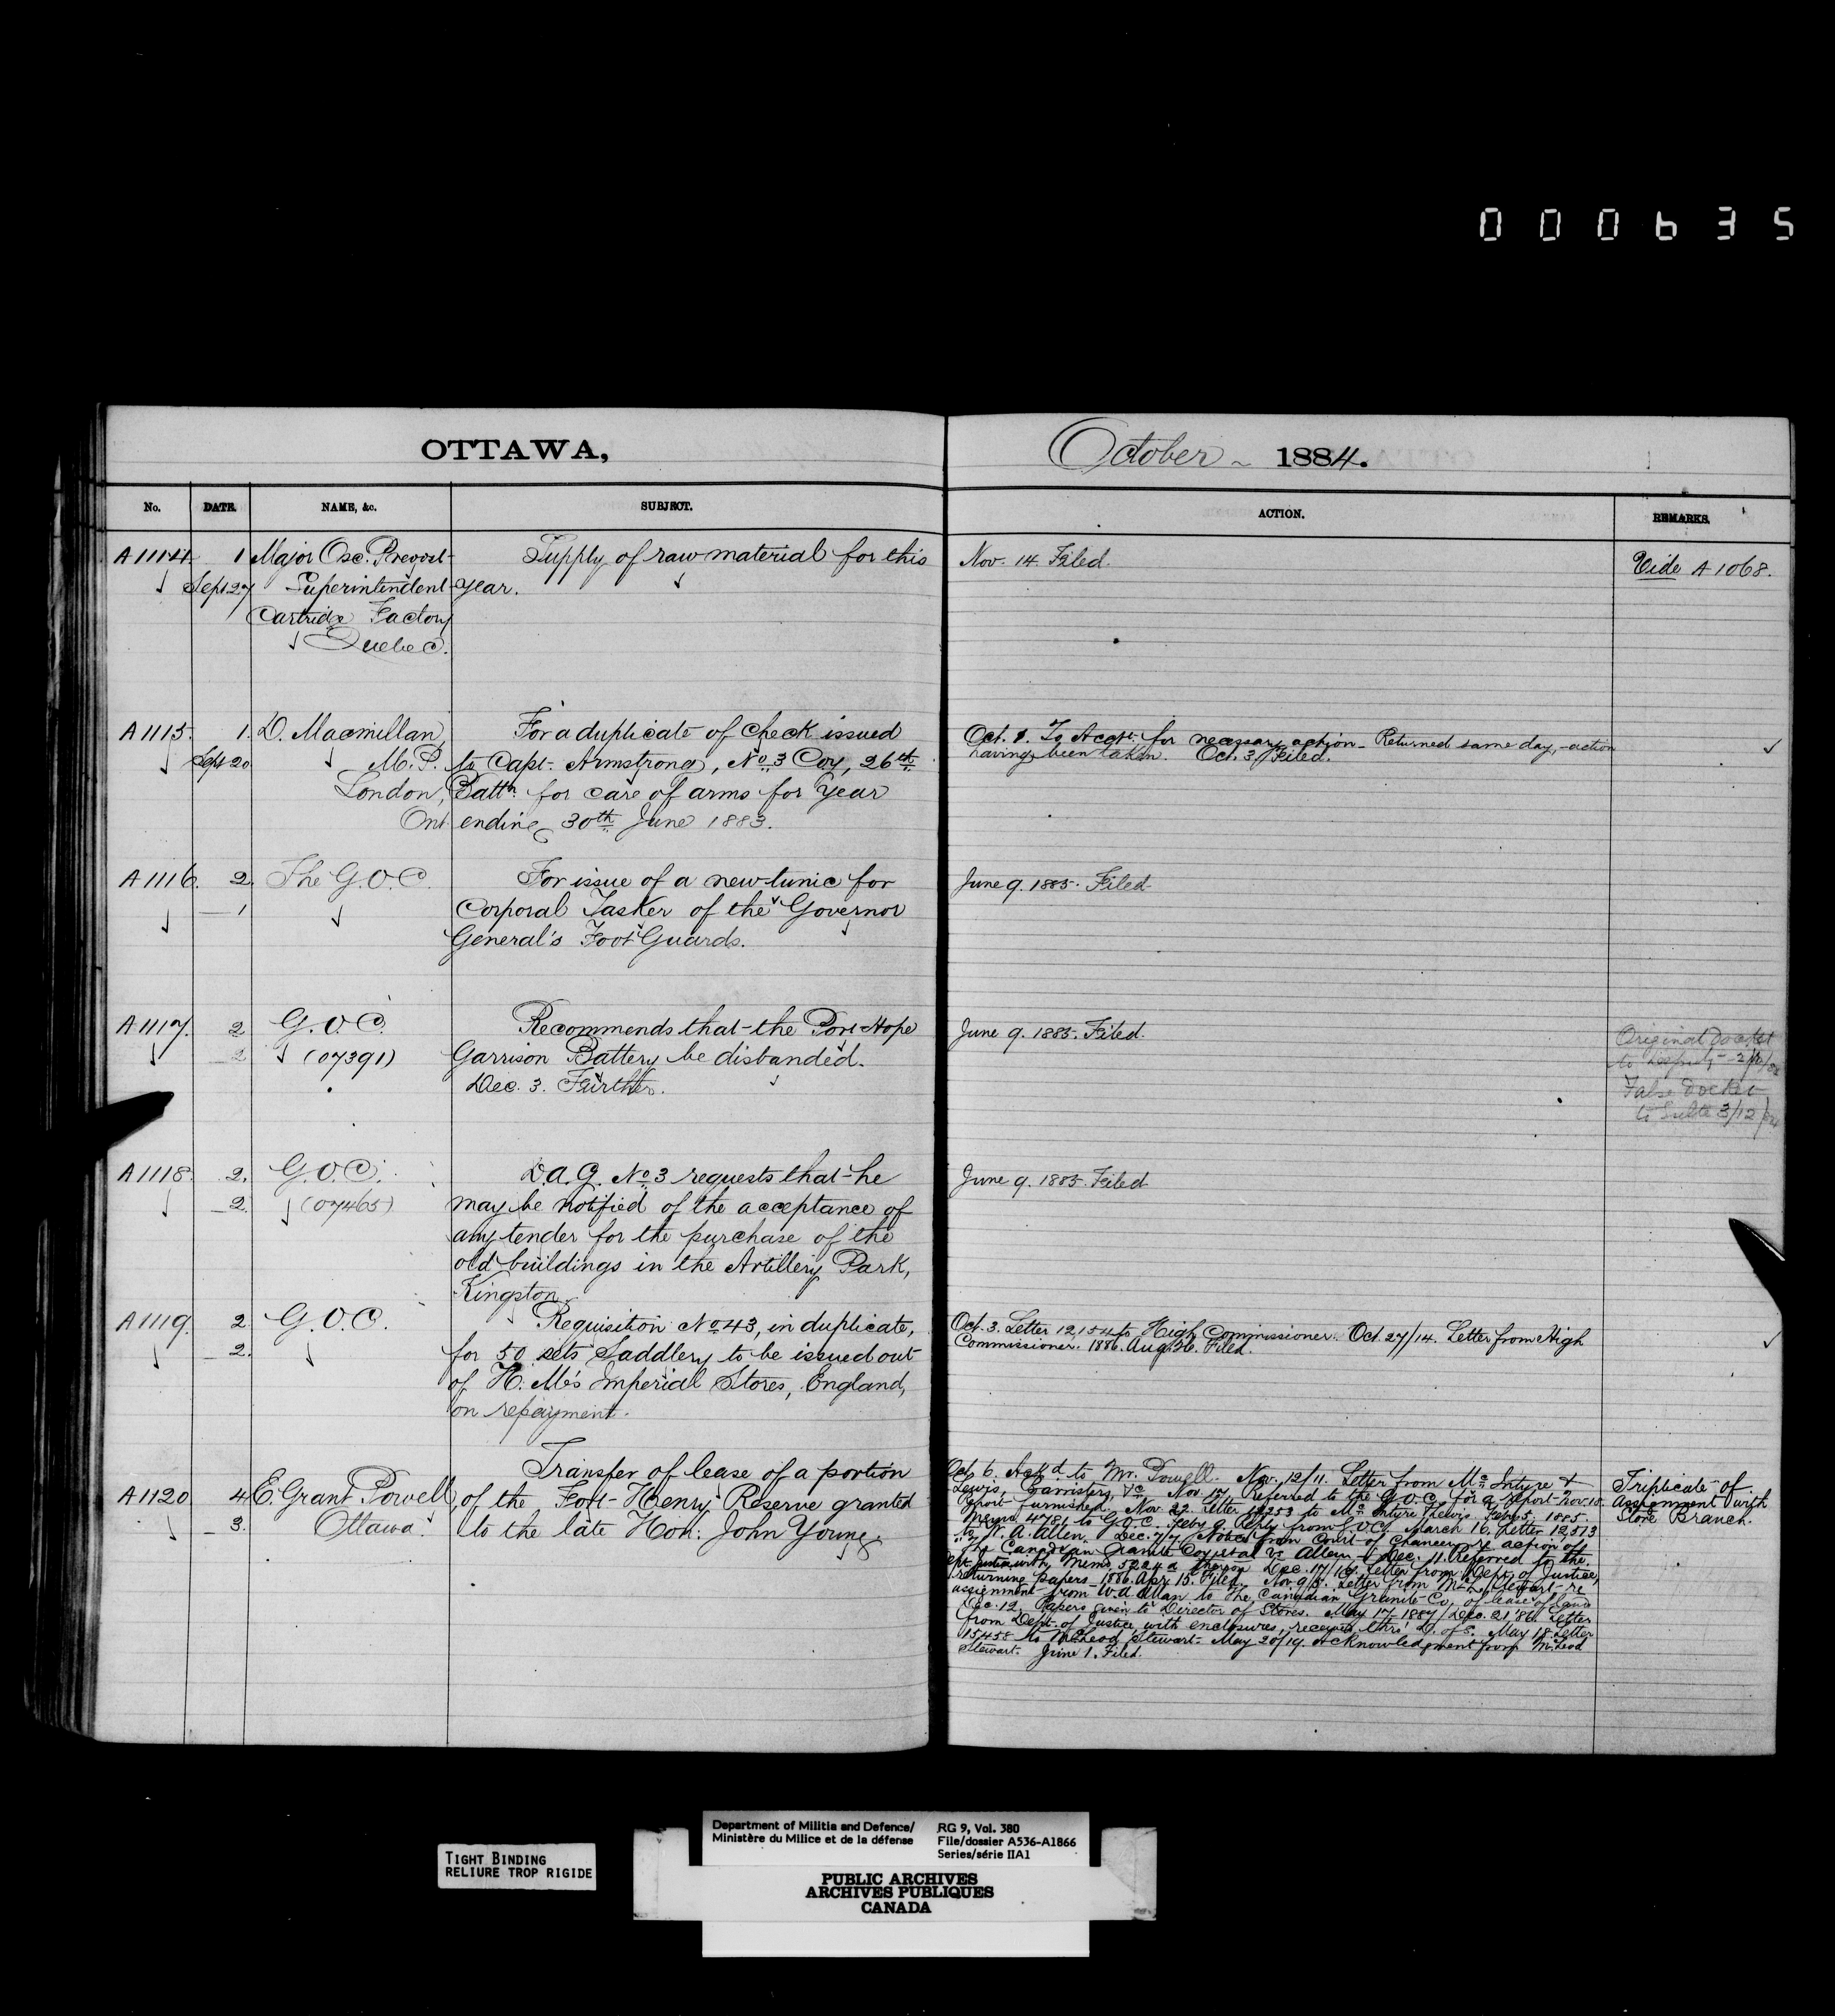 000635
OTTAWA,
October - 1884.
No. DATE. NAME, &c. SUBJECT. ACTION. REMARKS.
A1114. 1 Major Osc. Prevost Supply of raw material for this
Sept. 27 Superintendent year.
Cartridge Factory
Quebec.
Nov. 14 Filed.
Vide A1068.
A1115. 1. D. Macmillan, For a duplicate of check issued
Sept 20 M.P. to Capt. Armstrong, No. 3 Coy, 26th
London, Battn. for care of arms for year
Ont ending 30th June 1883.
Oct. 1. To Acct. for necessary action - Returned same day, - action
having been taken. Oct. 3, Filed.
A1116. 2. The G.O.C. For issue of a new tunic for
1 Corporal Tasker of the Governor
General's Foot Guards.
June 9. 1885. Filed
A1117. 2 G.O.C. Recommends that the Port Hope
2 (07391) Garrison Battery be disbanded.
Dec. 3. Further.
June 9. 1885. Filed.
Original Docket
to
False Docket
to 3/12/84
A1118. 2. G.O.C. D.A.G. No. 3 requests that he
2. (07465) may be notified of the acceptance of
any tender for the purchase of the
old buildings in the Artillery Park,
Kingston.
June 9. 1885. Filed
A1119. 2. G.O.C. Requisition No 43, in duplicate,
2. for 50 sets Saddlery to be issued out
of H.M's Imperial Stores, England,
on repayment.
Oct. 3. Letter 12,154 to High Commissioner. Oct. 27/14. Letter from High
Commissioner. 1886. Aug. 26. Filed.
Transfer of lease of a portion
A1120 4 E. Grant Powell, of the Fort Henry Reserve granted
3. Ottawa. to the late Hon: John Young.
Oct 6. Ackd to Mr. Powell. Nov. 12/11. Letter from McIntyre &
Lewis, Barristers, &c. Nov. 14, Referred to the G.O.C. for a report - Nov. 18.
Report furnished. Nov. 22. Letter 12253 to McIntyre & Lewis. Feby 5, 1885.
Memo 4781 to G.O.C. Feby 9. Reply from G.O.C. March 16. Letter 12,513
to W. A. Allen. Dec. 7/7 Notice from Court of Chancery re action of
The Canadian Granite Coy et al vs. Allen - Dec. 11. Referred to the
Dept. Justice with Memo 5224 Dec. 17/16. Letter from Dept. of Justice,
returning papers - 1886. Apr. 15. Filed. Nov. 9/8. Letter from McL. Stewart - re
assignment from W.A. Allan to the Canadian Granite Co, of lease of land
Dec. 12, Papers given to Director of Stores. May 17 1887/Dec. 21 '86. Letter
from Dept. of Justice with enclosures, received thro' D. of S. May 18. Letter
15458 to McLeod Stewart. May 20/19. Acknowledgment from McLeod
Stewart. June 1. Filed.
Triplicate of
Assignment with
Store Branch.
TIGHT BINDING
RELIURE TROP RIGIDE
Department of Militia and Defence/
Ministère du Milice et de la défense
RG 9, Vol. 380
File/dossier A536-A1866
Series/série IIA1
PUBLIC ARCHIVES
ARCHIVES PUBLIQUES
CANADA